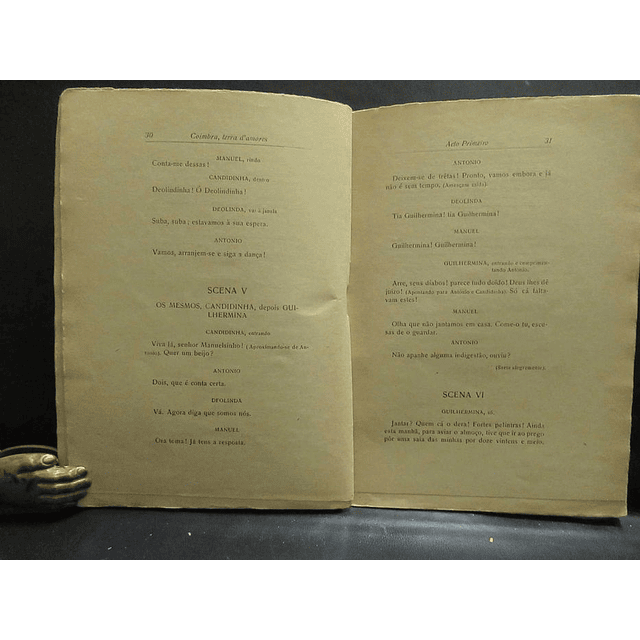 30 Coimbra, terra d'amores
MANUEL, rindo
Conta-me dessas!
CANDIDINHA, dentro
Deolindinha! Ó Deolindinha!
DEOLINDA, vai á janela
Suba, suba; estavamos à sua espera.
ANTONIO
Vamos, arranjem-se e siga a dança!
SCENA V
OS MESMOS, CANDIDINHA, depois GUI-
LHERMINA
CANDIDINHA, entrando
Viva lá, senhor Manuelsinho! (Aproximando-se de An-
tonio). Quer um beijo?
ANTONIO
Dois, que é conta certa.
DEOLINDA
Vá. Agora diga que somos nós.
MANUEL
Ora toma! Já tens a resposta.
Acto Primeiro 31
ANTONIO
Deixem-se de trêtas! Pronto, vamos embora e já
não é sem tempo.
DEOLINDA
Tia Guilhermina! tia Guilhermina!
MANUEL
Guilhermina! Guilhermina!
GUILHERMINA, entrando e cumprimen-
tando Antonio.
Arre, seus diabos! parece tudo doido! Deus lhes dê
juizo! (Apontando para Antonio e Candidinha). Só cá falta-
vam estes!
MANUEL
Olha que não jantamos em casa. Come-o tu, escu-
sas de o guardar.
ANTONIO
Não apanhe alguma indigestão, ouviu?
(Saem alegremente).
SCENA VI
GUILHERMINA, só
Jantar? Quem cá o dera! Fortes pelintras! Ainda
esta manhã, para aviar o almoço, tive que ir ao prego
pôr uma saia das minhas por doze vintens e meio.